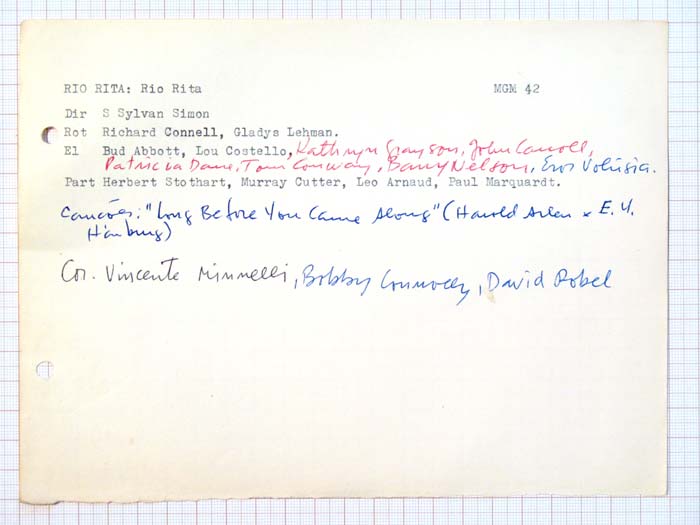 RIO RITA: Rio Rita MGM 42
Dir S Sylvan Simon
Rot Richard Connell, Gladys Lehman.
El Bud Abbott, Lou Costello, Kathryn Grayson, John Carroll,
Patricia Dane, Tom Conway, Barry Nelson, Eros Volúsia.
Part Herbert Stothart, Murray Cutter, Leo Arnaud, Paul Marquardt.
Canções: "Long Before You Came Along" (Harold Arlen x E. Y.
Harburg)
Cor. Vincente Minnelli, Bobby Connolly, David Robel